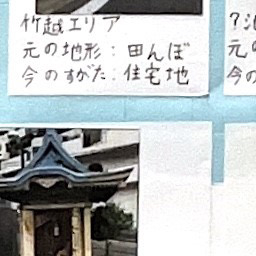 竹越エリア
元の地形：田んぼ
今のすがた：住宅地
元の
今の